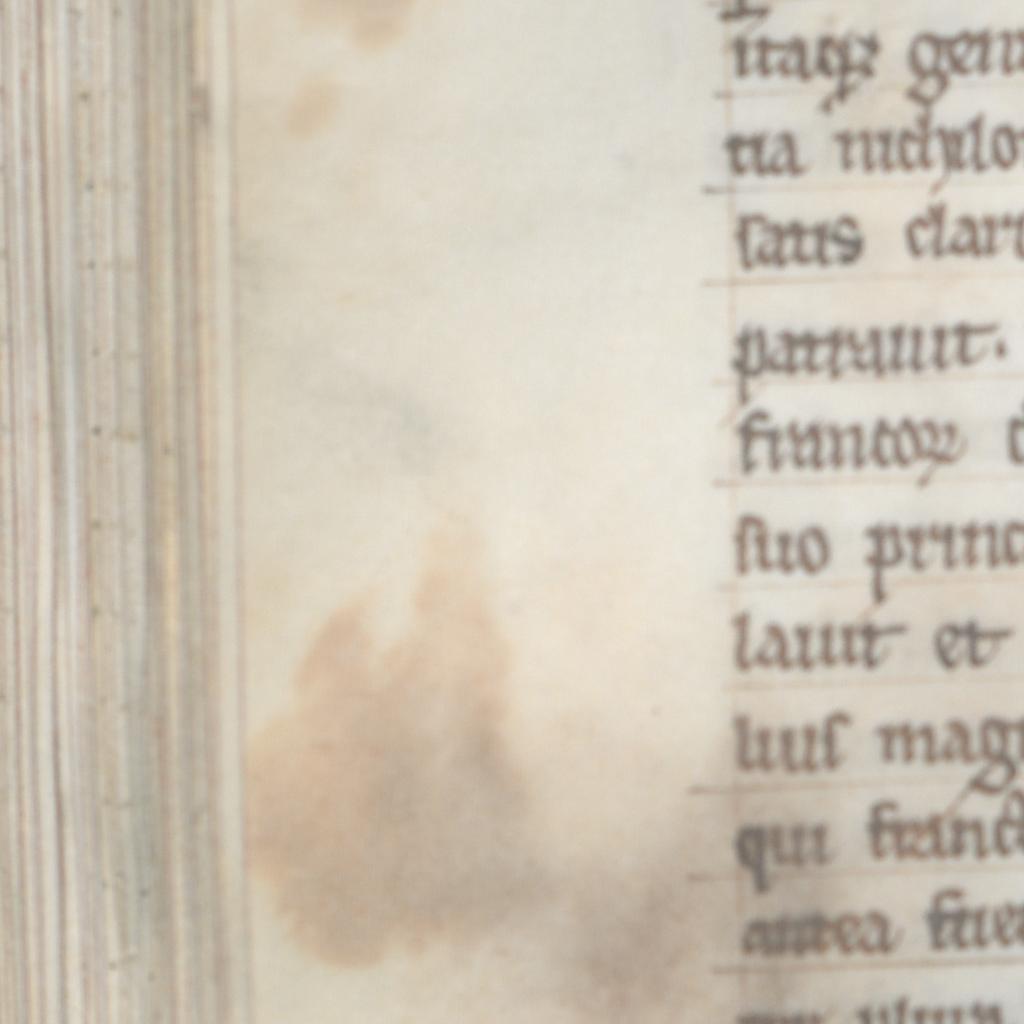 itaqꝫ gen
tia nichilo
satis clar
patrauit.
francoꝝ
suo princ
lauit et
liuis mag
qui franc
antea fue